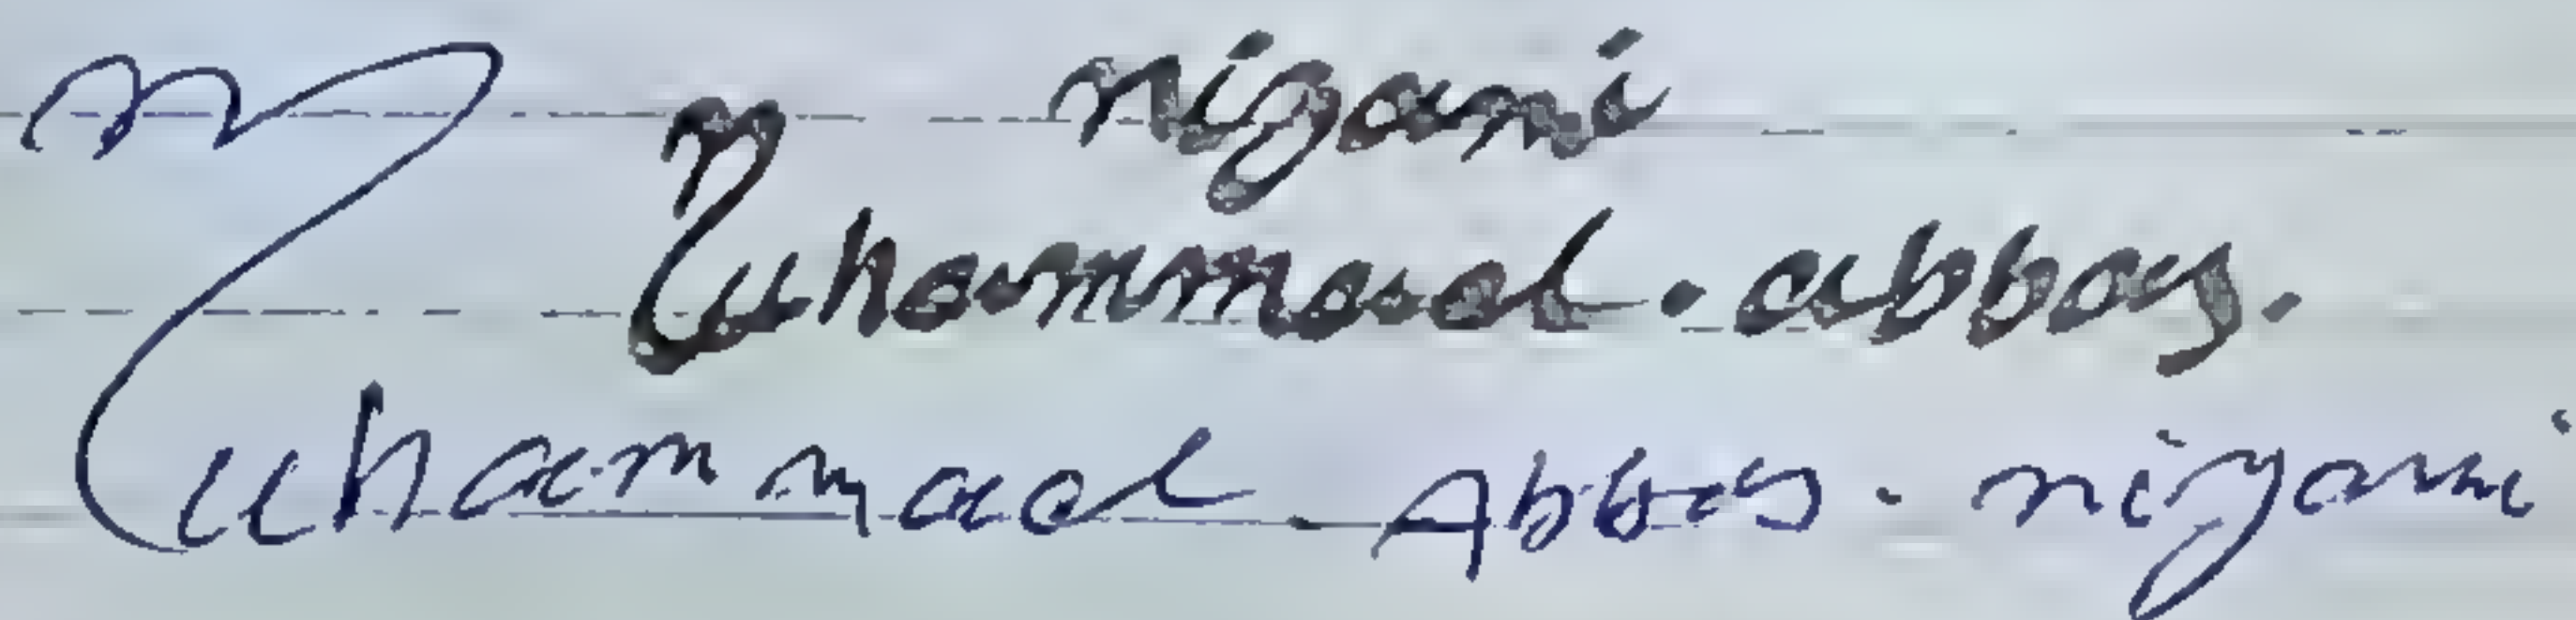 nizami
Muhammad. abbas.
Muhammad Abbas. nizami